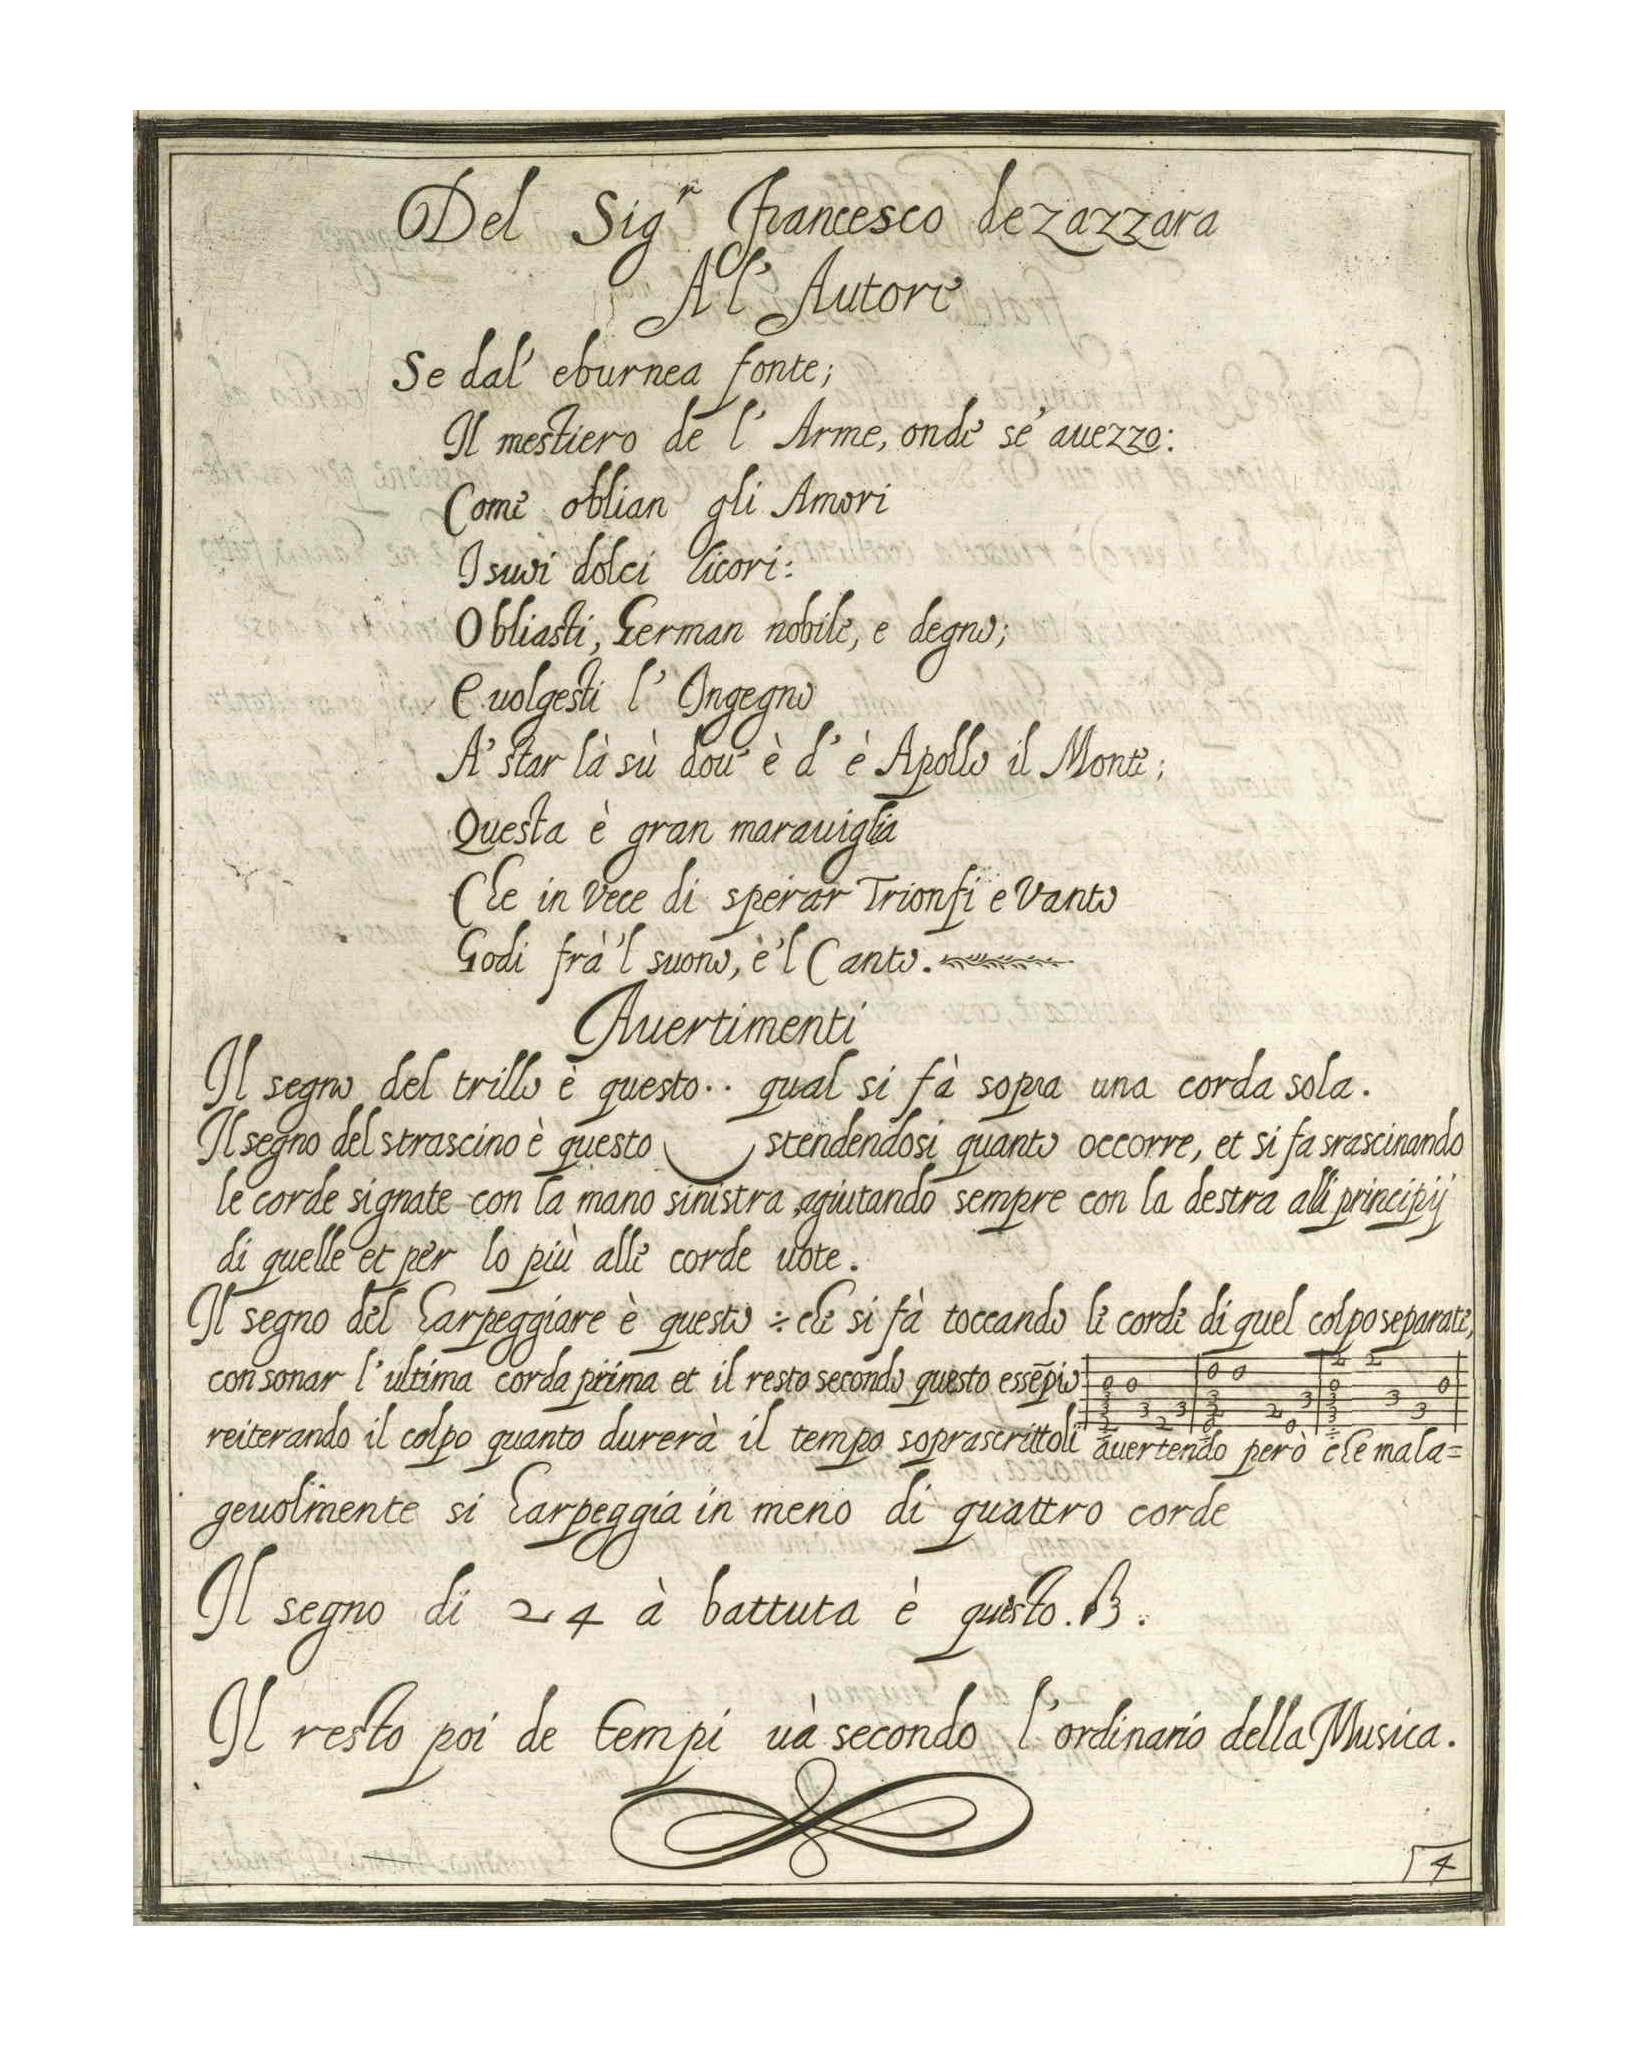 Del Sigr Francesco de Zazzara
Al' Autore
Se dal' eburnea fonte;
Il mestiero de l' Arme, onde se' auezzo:
Come oblian gli Amori
I suoi dolci licori:
Obliasti, German nobile, e degno;
E uolgesti l' Ingegno
A' star là sù dou' è d' è Apollo il Monte;
Questa è gran marauiglia
Che in Vece di sperar Trionfi e Vanto
Godi frà'l suono, è'l Canto.
Auertimenti
Il segno del trillo è questo·· qual si fà sopra una corda sola.
Il segno del strascino è questo stendendosi quanto occorre, et si fa srascinando
le corde signate con la mano sinistra, agiutando sempre con la destra alli principij
di quelle et per lo più alle corde uote.
Il segno del harpeggiare è questo ⁒ che si fà toccando le corde di quel colpo separate,
con sonar l'ultima corda prima et il resto secondo questo essēpio
reiterando il colpo quanto durerà il tempo soprascrittoli auertendo però che mala=
geuolmente si harpeggia in meno di quattro corde
Il segno di 24 à battuta è questo. ẞ.
Il resto poi de tempi uà secondo l'ordinario della Musica.
4